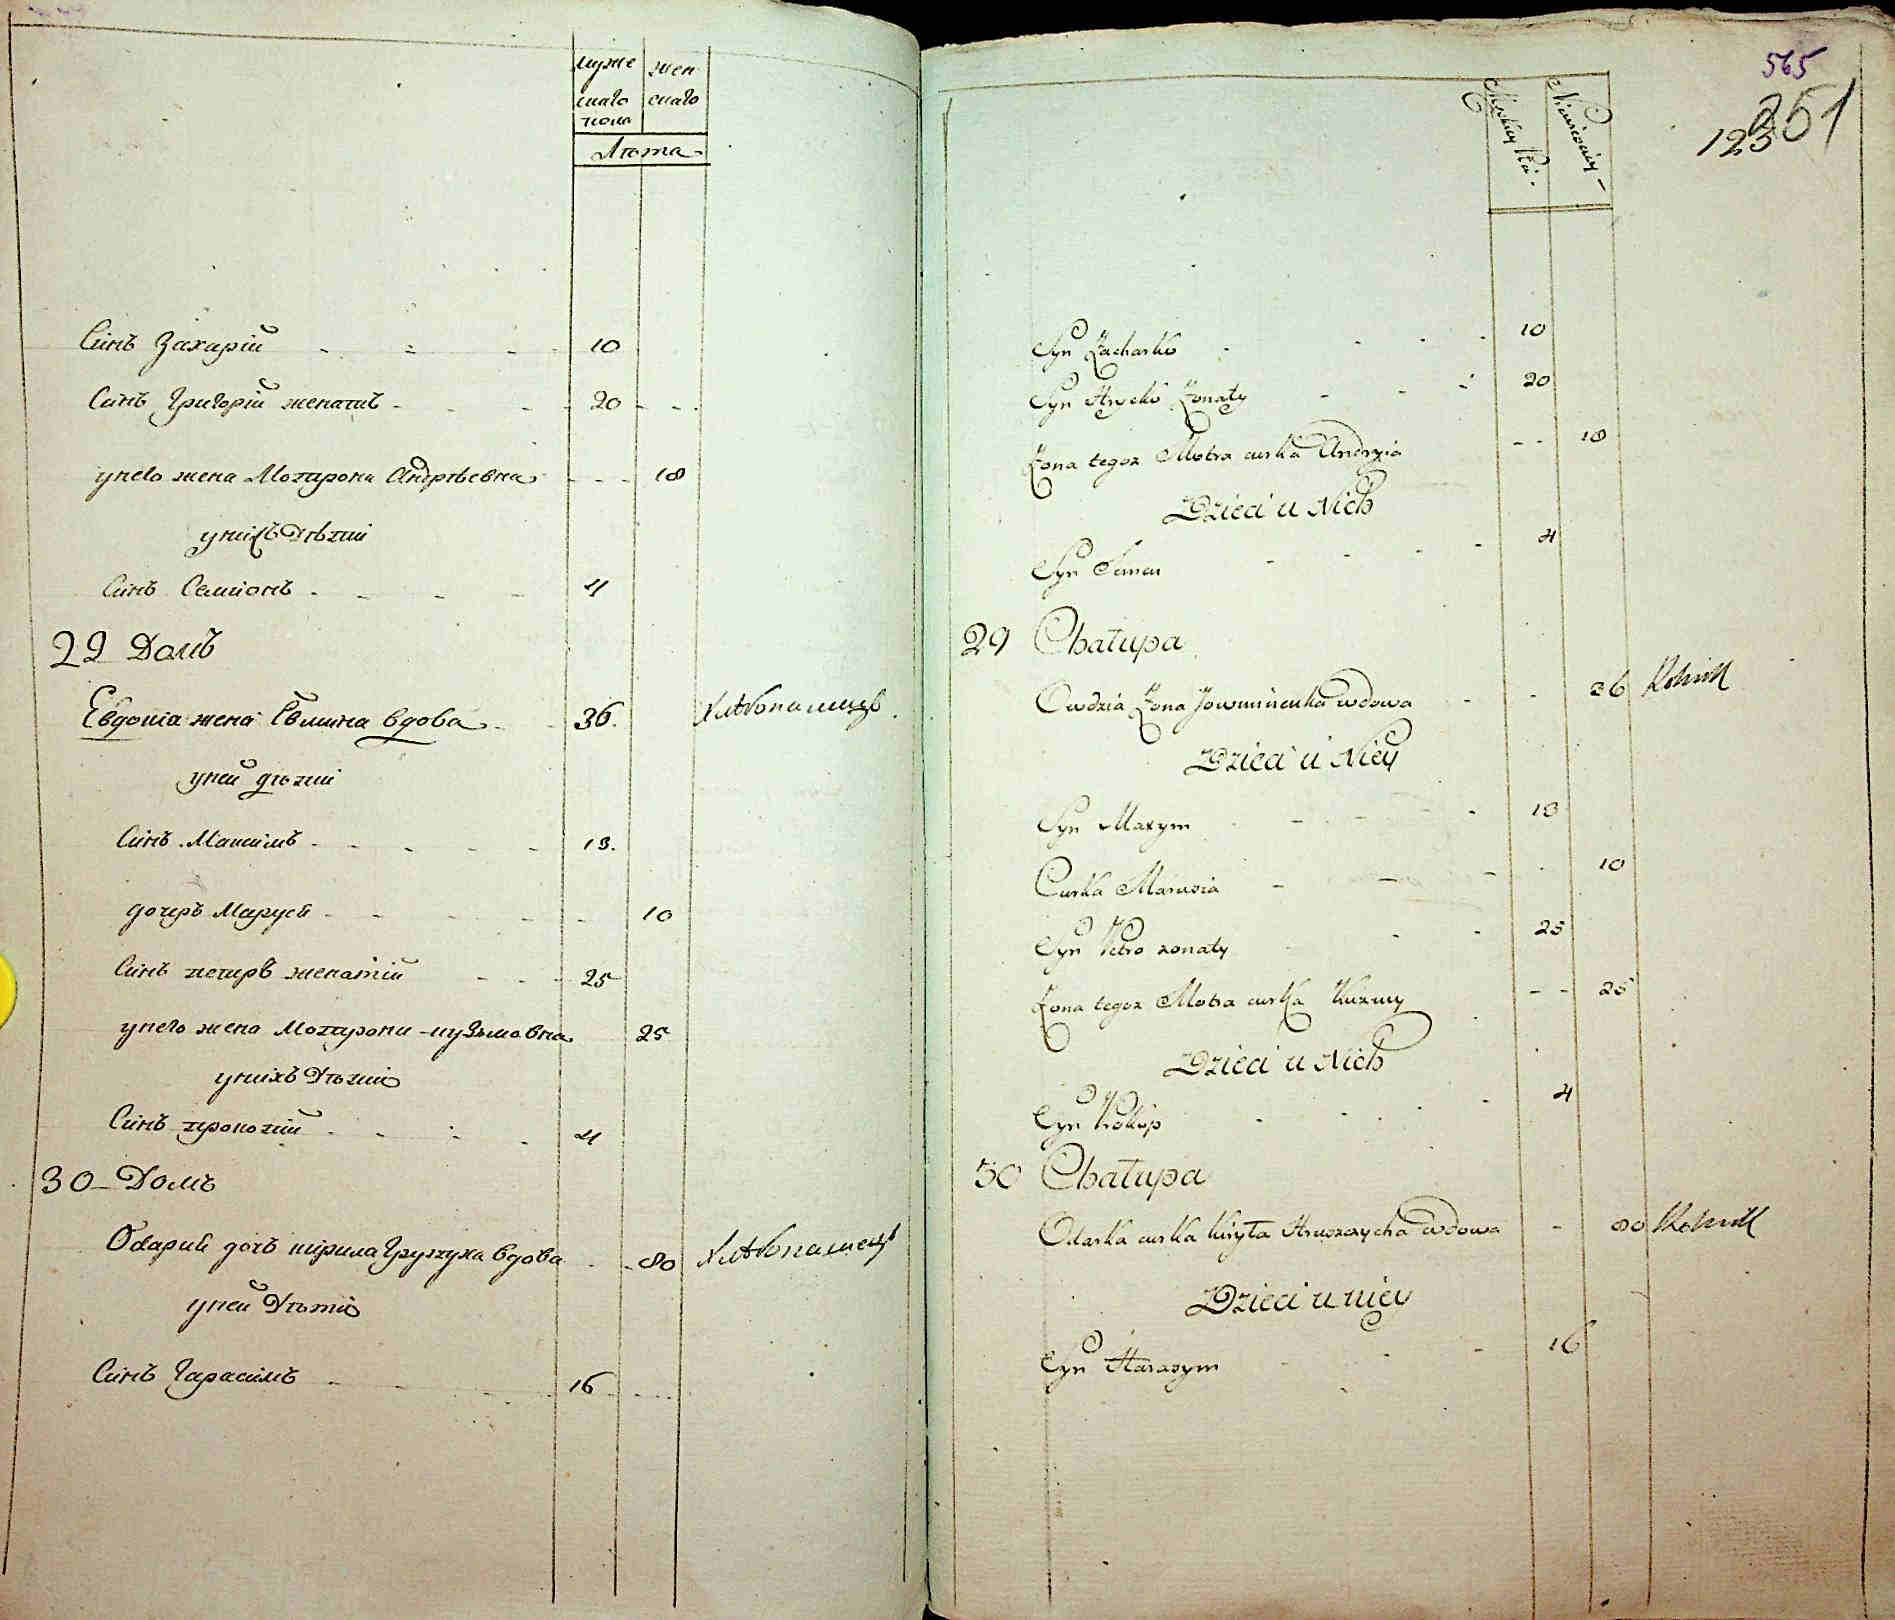 муже
жен
скаго
скаго
пола
Лѣта
Синъ Захарій 10
Синъ Григорій женатъ 20
унего жена Мотрона Андрѣевна 18
унихъ дѣтии
Синъ Семионъ 4
29 Домъ
Евдокіа жена Евмина вдова 36. Хлѣбопашецъ
уней дѣтии
Синъ Максимъ 13.
дочеръ Марусѣ 10
Синъ петеръ женатій 25
унего жена Мотрона кузьмовна 25
унихъ дѣтии
Синъ прокопій 4
30 Домъ
Одария дочъ кирила Грузчуха вдова 80 Хлѣбопашецъ
уней дѣтии
Синъ Гарасимъ 16
565
251
123
Syn Zacharko 10
Syn Hrycko Żonaty 20
Żona tegoż Motra curka Andrzia 18
Dzieci u Nich
Syn Semen 4
29 Chałupa
Owdzia Żona Jowminenka wdowa 36 Rolnik
Dzieci u Niey
Syn Maxym 13
Curka Marusia 10
Syn Petro zonaty 25
Żona tegoz Motra curka Kuzmy 25
Dzieci u Nich
Syn Prokop 4
30 Chałupa
Odarka curka kiryła Hruszczycha wdowa 80 Rolnik
Dzieci u niey
Syn Harasym 16